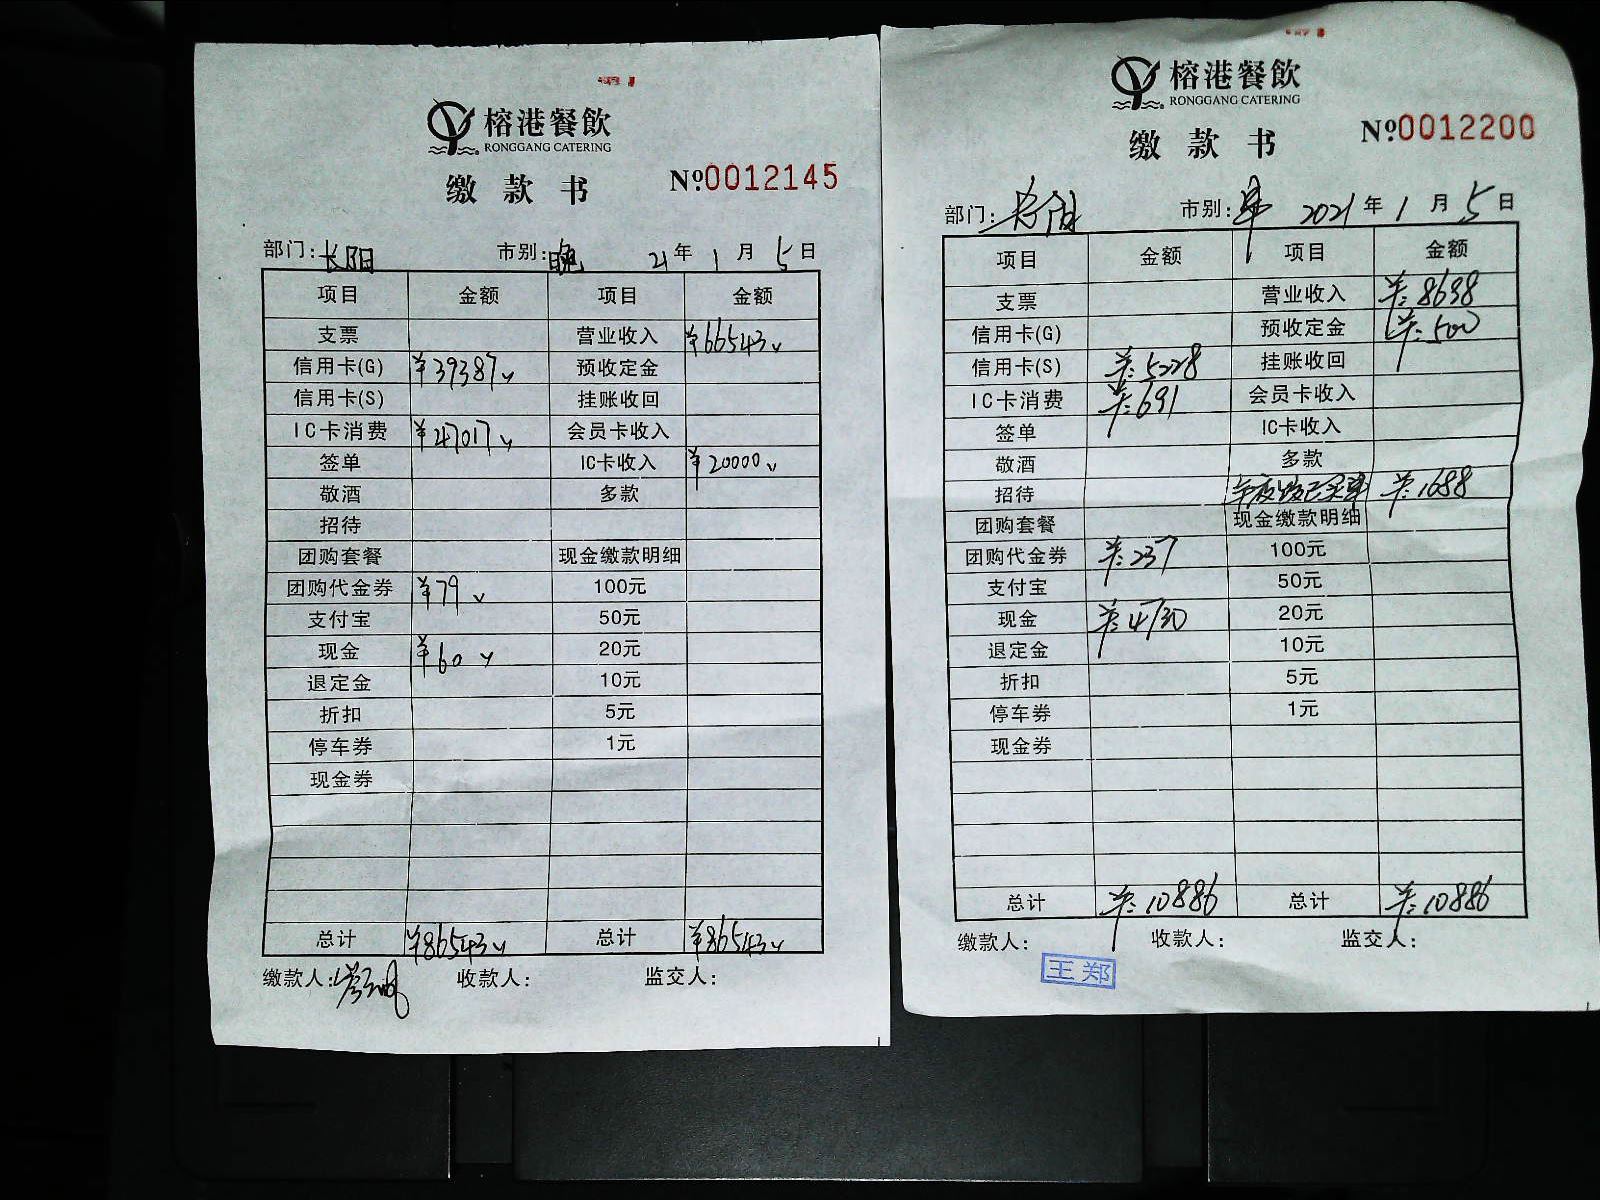 榕港餐飲
RONGGANG CATERING
缴款书
№0012145
部门:长阳 市别:晚 21年1月5日
项目 金额 项目 金额
支票 营业收入 ¥66543
信用卡(G) ¥39387 预收定金
信用卡(S) 挂账收回
IC卡消费 ¥47017 会员卡收入
签单 IC卡收入 ¥20000
敬酒 多款
招待
团购套餐 现金缴款明细
团购代金券 ¥79 100元
支付宝 50元
现金 ¥60 20元
退定金 10元
折扣 5元
停车券 1元
现金券
总计 ¥86543 总计 ¥86543
缴款人: 收款人: 监交人:
榕港餐飲
RONGGANG CATERING
缴款书
№0012200
部门: 市别:早 2021年1月5日
项目 金额 项目 金额
支票 营业收入 ¥:8698
信用卡(G) 预收定金 ¥:500
信用卡(S) ¥:5228 挂账收回
IC卡消费 ¥:691 会员卡收入
签单 IC卡收入
敬酒 多款
招待 年夜饭已买单 ¥:1688
团购套餐 现金缴款明细
团购代金券 ¥:237 100元
支付宝 50元
现金 ¥:4730 20元
退定金 10元
折扣 5元
停车券 1元
现金券
总计 ¥:10886 总计 ¥:10886
缴款人: 收款人: 监交人:
王郑